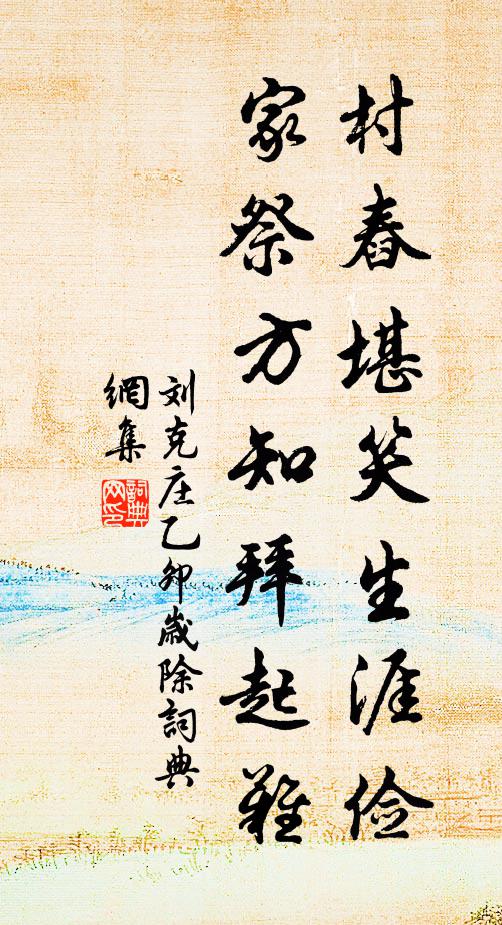 村舂堪笑生涯俭
家祭方知拜起难
刘克庄乙卯岁除詞典
網集
詞典
网印